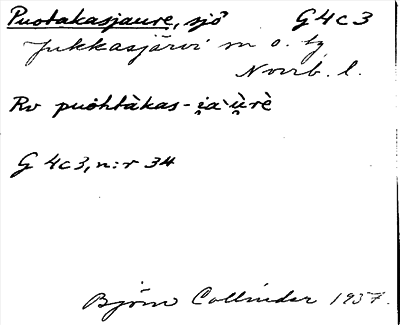 Puotakasjaure, sjö G4c3
Jukkasjärvi sn o. tg
Norrb. l.
Rv puohtàkas-i̯a`ù̯rè
G 4c3, n:r 34
Björn Collinder 1957.